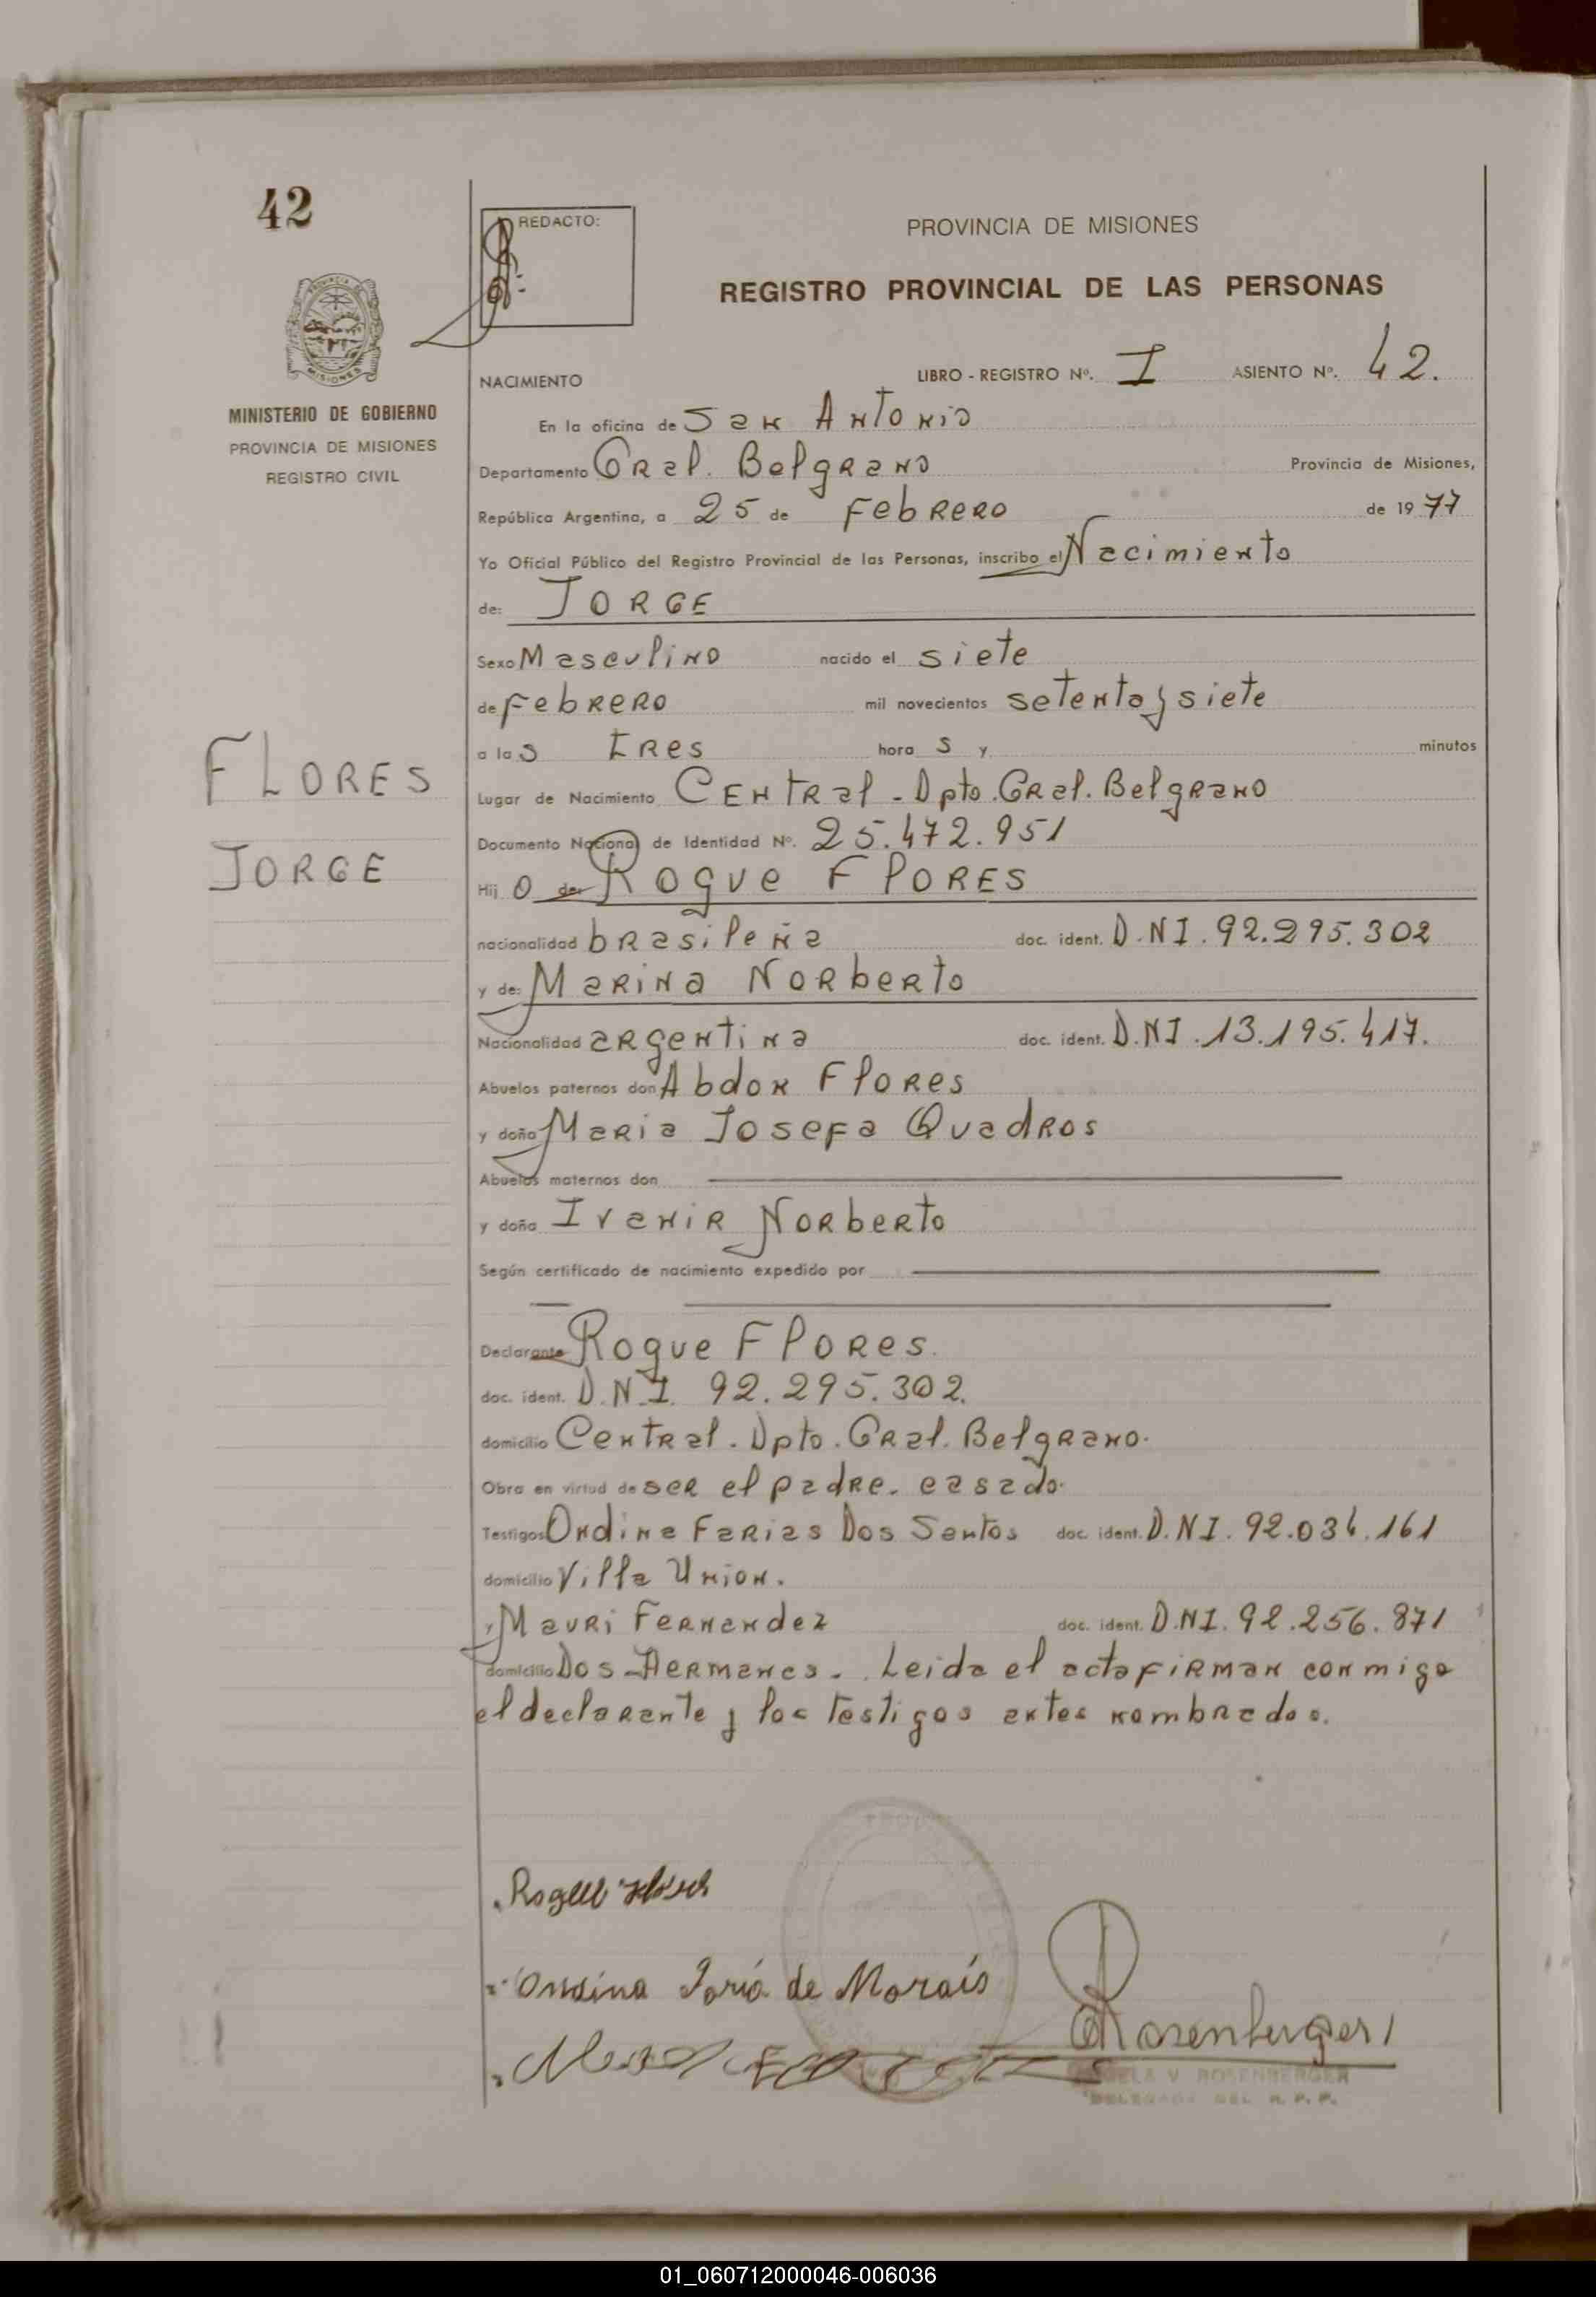 42
REDACTO:
PROVINCIA DE MISIONES
REGISTRO PROVINCIAL DE LAS PERSONAS
MISIONES
MINISTERIO DE GOBIERNO
PROVINCIA DE MISIONES
REGISTRO CIVIL
NACIMIENTO LIBRO - REGISTRO Nº. I ASIENTO Nº. 42.
En la oficina de San Antonio
Departamento Gral. Belgrano Provincia de Misiones,
República Argentina, a 25 de Febrero de 1977
Yo Oficial Público del Registro Provincial de las Personas, inscribo el Nacimiento
de: JORGE
Sexo Masculino nacido el siete
de Febrero mil novecientos setenta y siete
a las tres horas y minutos
FLORES
JORGE
Lugar de Nacimiento Central - Dpto. Gral. Belgrano
Documento Nacional de Identidad Nº. 25.472.951
Hijo de: Roque FLORES
nacionalidad brasileña doc. ident. D.N.I. 92.295.302
y de: Marina Norberto
Nacionalidad argentina doc. ident. D.N.I. 13.195.417.
Abuelos paternos don Abdon Flores
y doña Maria Josefa Quadros
Abuelos maternos don
y doña Ivanir Norberto
Según certificado de nacimiento expedido por
Declarante Roque Flores.
doc. ident. D.N.I. 92.295.302.
domicilio Central. Dpto. Gral. Belgrano.
Obra en virtud de ser el padre. casado.
Testigos Ondina Farias Dos Santos doc. ident. D.N.I. 92.034.161
domicilio Villa Union.
y Mauri Fernandez doc. ident. D.N.I. 92.256.871
domicilio Dos Hermanas. Leida el acta firman conmigo
el declarante y los testigos antes nombrados.
Ondina Faria de Morais
Rosenberger
V. ROSENBERGER
DEL R. P. P.
01_060712000046-006036